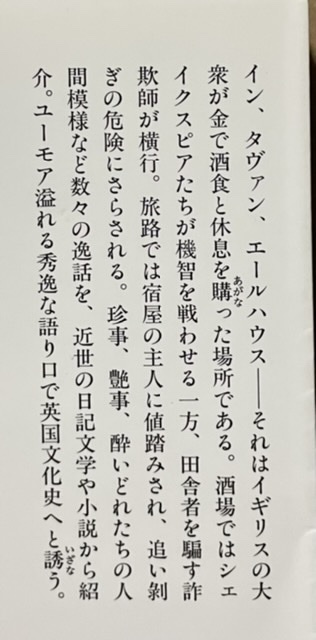 イン、タヴァン、エールハウス――それはイギリスの大
衆が金で酒食と休息を購った場所である。酒場ではシェ
イクスピアたちが機智を戦わせる一方、田舎者を騙す詐
欺師が横行。旅路では宿屋の主人に値踏みされ、追い剝
ぎの危険にさらされる。珍事、艶事、酔いどれたちの人
間模様など数々の逸話を、近世の日記文学や小説から紹
介。ユーモア溢れる秀逸な語り口で英国文化史へと誘う。
あがな
いざな